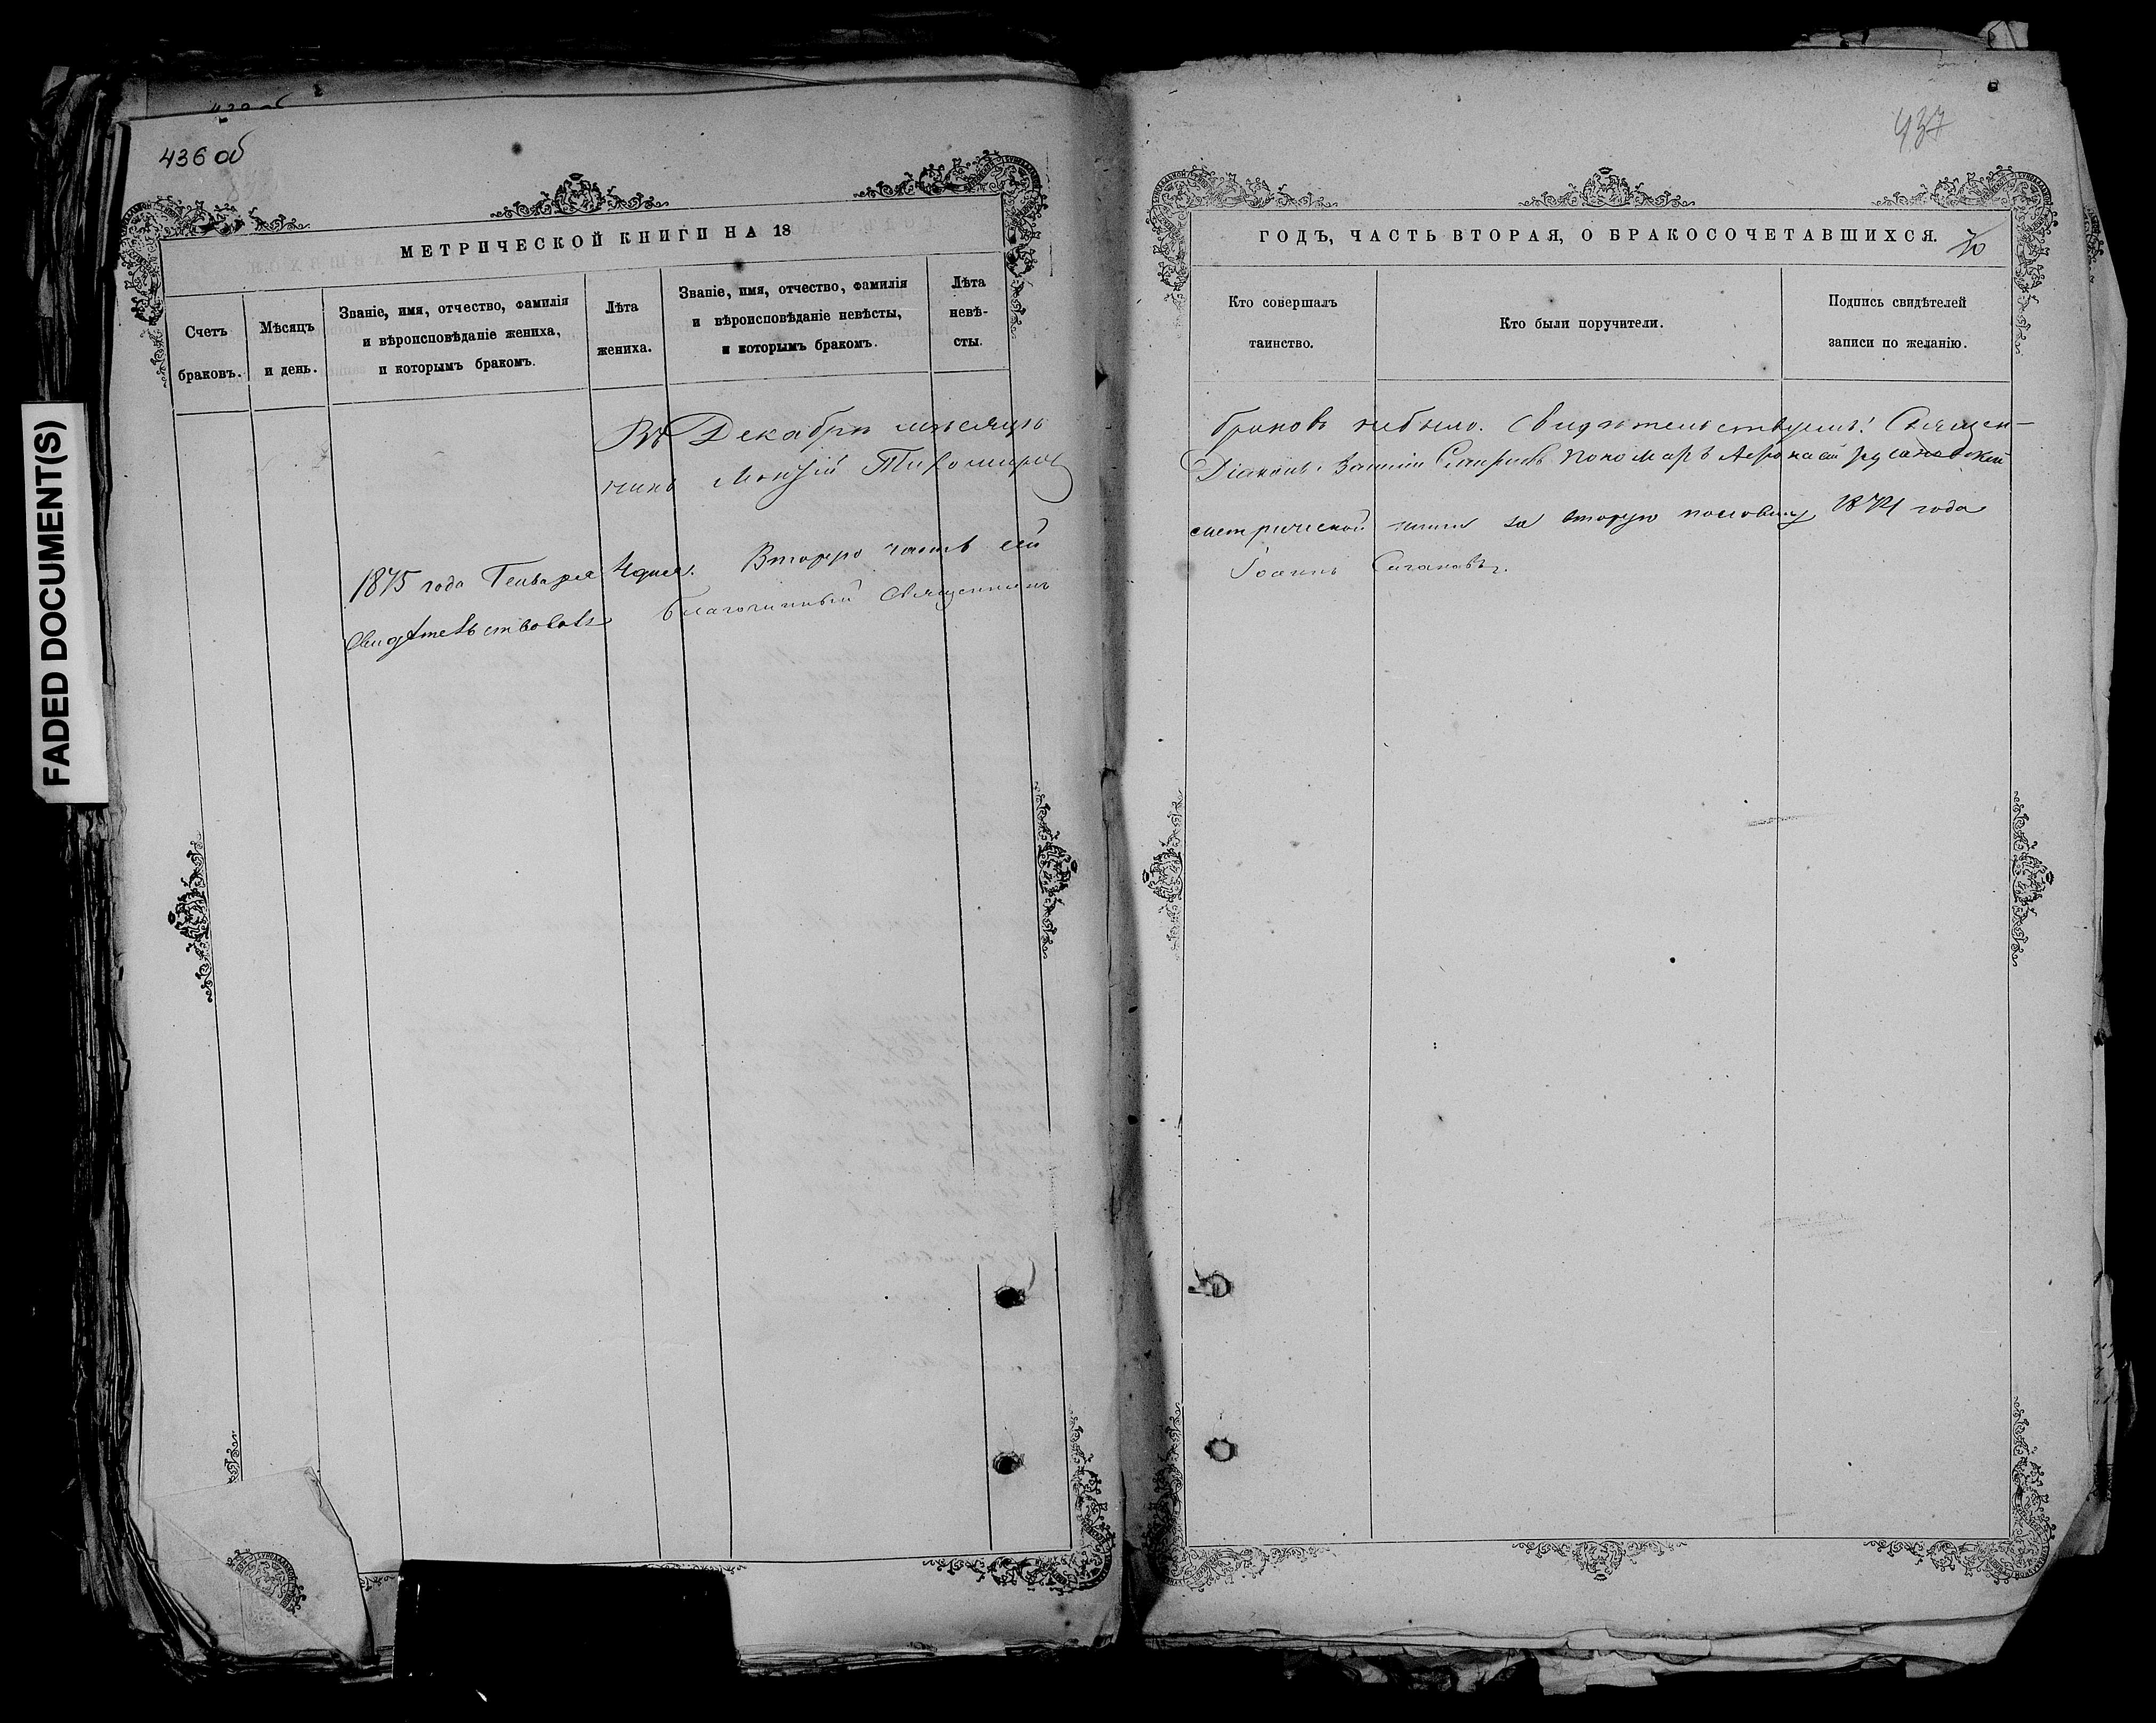 436 об
437
FADED DOCUMENT(S)
МЕТРИЧЕСКОЙ КНИГИ НА 18
ГОДЪ, ЧАСТЬ ВТОРАЯ, О БРАКОСОЧЕТАВШИХСЯ.
Счетъ браковъ.
Мѣсяцъ и день.
Званіе, имя, отчество, фамилія
и вѣроисповѣданіе жениха,
и которымъ бракомъ.
Лѣта
жениха.
Званіе, имя, отчество, фамилія
и вѣроисповѣданіе невѣсты,
и которымъ бракомъ.
Лѣта
невѣ-
сты.
Кто совершалъ
таинство.
Кто были поручители.
Подпись свидѣтелей
записи по желанію.
Въ Декабрѣ мѣсяцѣ браковъ небыло. Свидѣтельствуемъ: Священ-
никъ Тихомировъ Діаконъ Пономаръ
1875 года Генваря 4 дня. Вторую часть сей метрической книги за вторую половину 1874 года
Свидѣтельствовалъ Благочинный Священникъ Іоаннъ